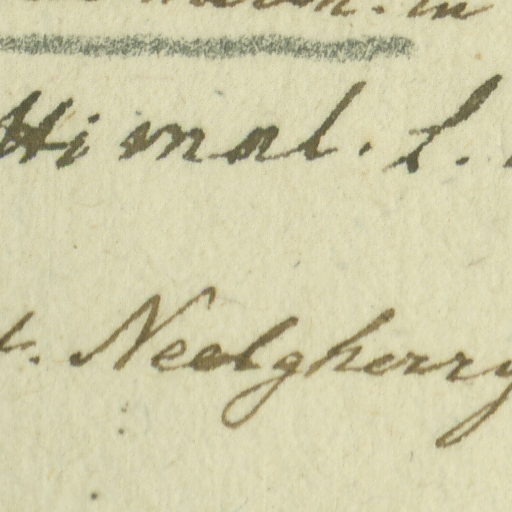 in
Himal. l.
. Neelgherry